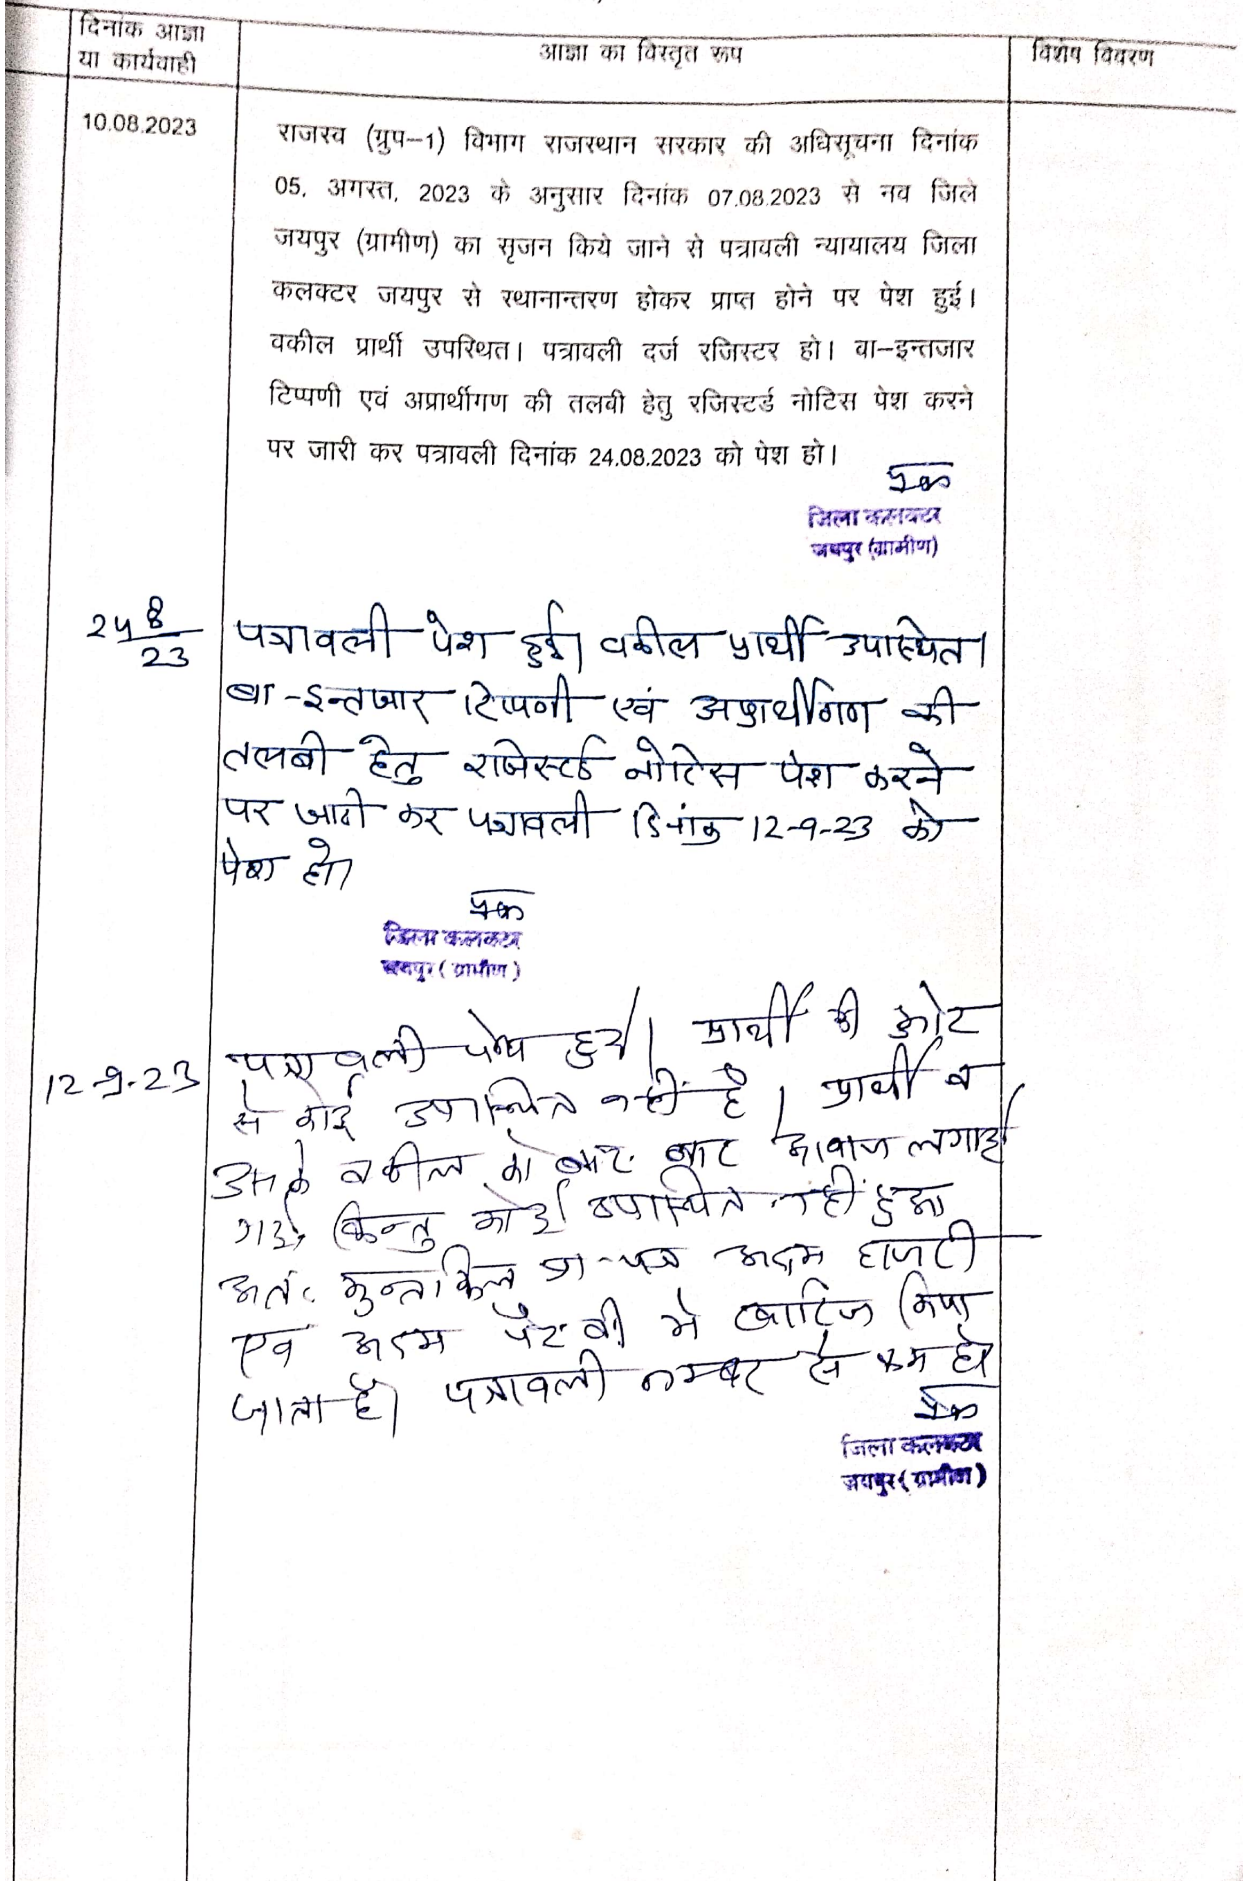 दिनांक आज्ञा
या कार्यवाही
आज्ञा का विस्तृत रूप
विशेष विवरण
10.08.2023
राजस्व (ग्रुप–1) विभाग राजस्थान सरकार की अधिसूचना दिनांक
05, अगस्त, 2023 के अनुसार दिनांक 07.08.2023 से नव जिले
जयपुर (ग्रामीण) का सृजन किये जाने से पत्रावली न्यायालय जिला
कलक्टर जयपुर से स्थानान्तरण होकर प्राप्त होने पर पेश हुई।
वकील प्रार्थी उपस्थित। पत्रावली दर्ज रजिस्टर हो। बा–इन्तजार
टिप्पणी एवं अप्रार्थीगण की तलबी हेतु रजिस्टर्ड नोटिस पेश करने
पर जारी कर पत्रावली दिनांक 24.08.2023 को पेश हो।
जिला कलक्टर
जयपुर (ग्रामीण)
24 8
23
पत्रावली पेश हुई। वकील प्रार्थी उपस्थित।
बा-इन्तजार टिप्पणी एवं अप्रार्थीगण की
तलबी हेतु रजिस्टर्ड नोटिस पेश करने
पर जारी कर पत्रावली दिनांक 12-9-23 को
पेश हो।
जिला कलक्टर
जयपुर (ग्रामीण)
12-9-23
पत्रावली पेश हुई। प्रार्थी की ओर
से कोई उपस्थित नहीं है। प्रार्थी व
उसके वकील को बार-बार आवाज लगाई
गई, किन्तु कोई उपस्थित नहीं हुआ
अतः मुन्तकिल प्रा-पत्र अदम हाजरी
एवं अदम पैरवी में खारिज किया
जाता है। पत्रावली नम्बर से कम हो
जिला कलक्टर
जयपुर (ग्रामीण)